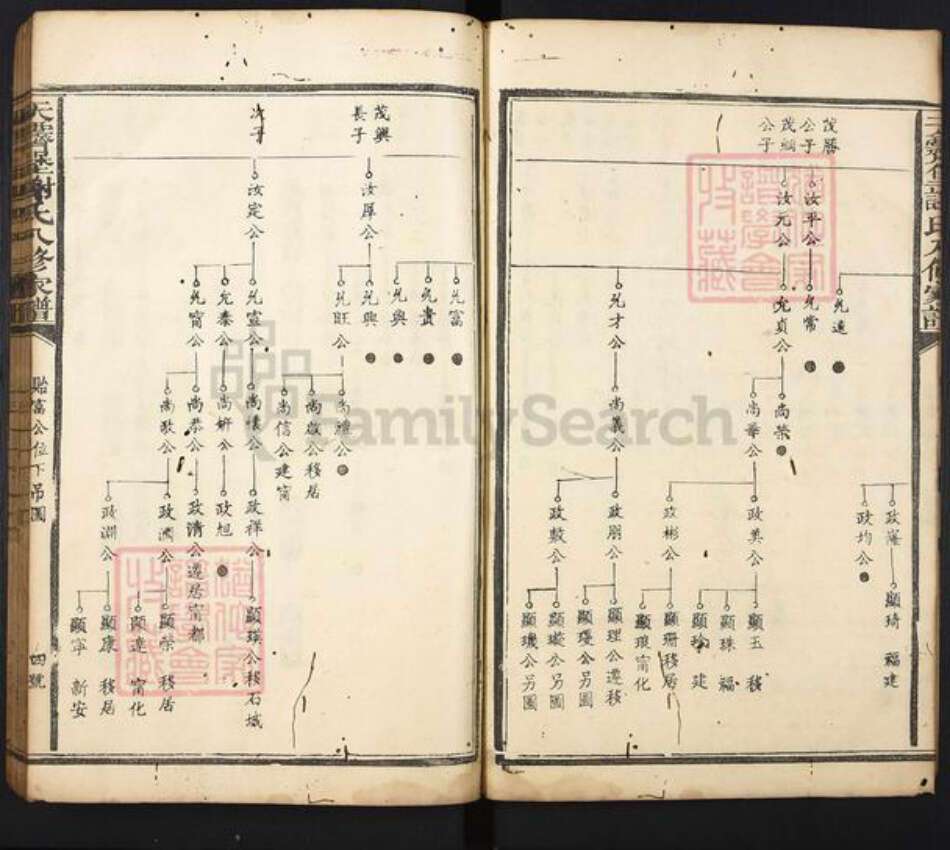 茂勝
公子
茂綱
公子
汝平公
汝元公
允遠
允常
允貞公
允才公
尚榮
尚華公
尚義公
政瀧
政均公
政美公
政彬公
政朋公
政數公
顯琦 福建
顯玉 移
顯珠 福
顯珍 建
顯珊移居
顯琅甯化
顯理公遷移
顯璦公另圖
顯璇公另圖
顯璣公另圖
茂興
長子
次子
汝犀公
汝定公
允富
允貴
允興
允旺公
允宣公
允泰公
允甯公
尚禮公
尚啟公移居
尚信公建甯
尚懷公
尚妍公
尚恭公
尚敬公
政祥公
政旭
政清公遷居甯都
政淵公
顯瑛公移石城
顯榮 移居
顯達 甯化
顯康 移居
顯寧 新安
謝氏八修家譜
貽富公位下吊圖
四號
FamilySearch